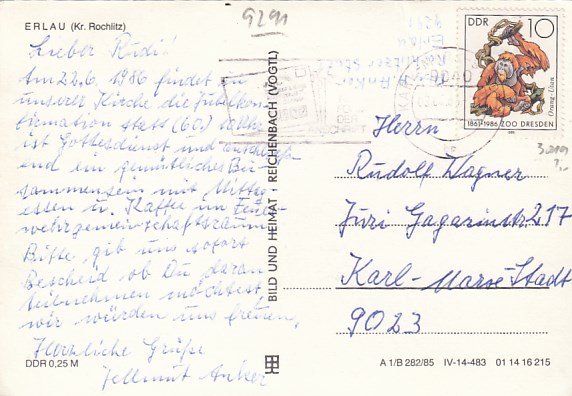 ERLAU (Kr. Rochlitz)
9291
Lieber Rudi!
Am 22.6. 1986 findet in
unserer Kirche die Jubelkon-
firmation statt (60.) 10 Uhr
ist Gottesdienst und anschließ-
end ein gemütliches Bei-
sammensein mit Mittag-
essen u. Kaffee im Feuer-
wehrgemeinschaftsraum
Bitte, gib uns sofort
Bescheid ob Du daran
teilnehmen möchtest,
wir würden uns freuen,
Herzliche Grüße
Hellmut Anker
DDR 0,25 M
BILD UND HEIMAT REICHENBACH (VOGTL)
9291
Erlau
H. Anker
DDR 10
Orang-Utan
1861-1986 ZOO DRESDEN
Herrn
Rudolf Wagner
Juri Gagarinstr. 217
Karl-Marx-Stadt
9023
A 1/B 282/85 IV-14-483 01 14 16 215